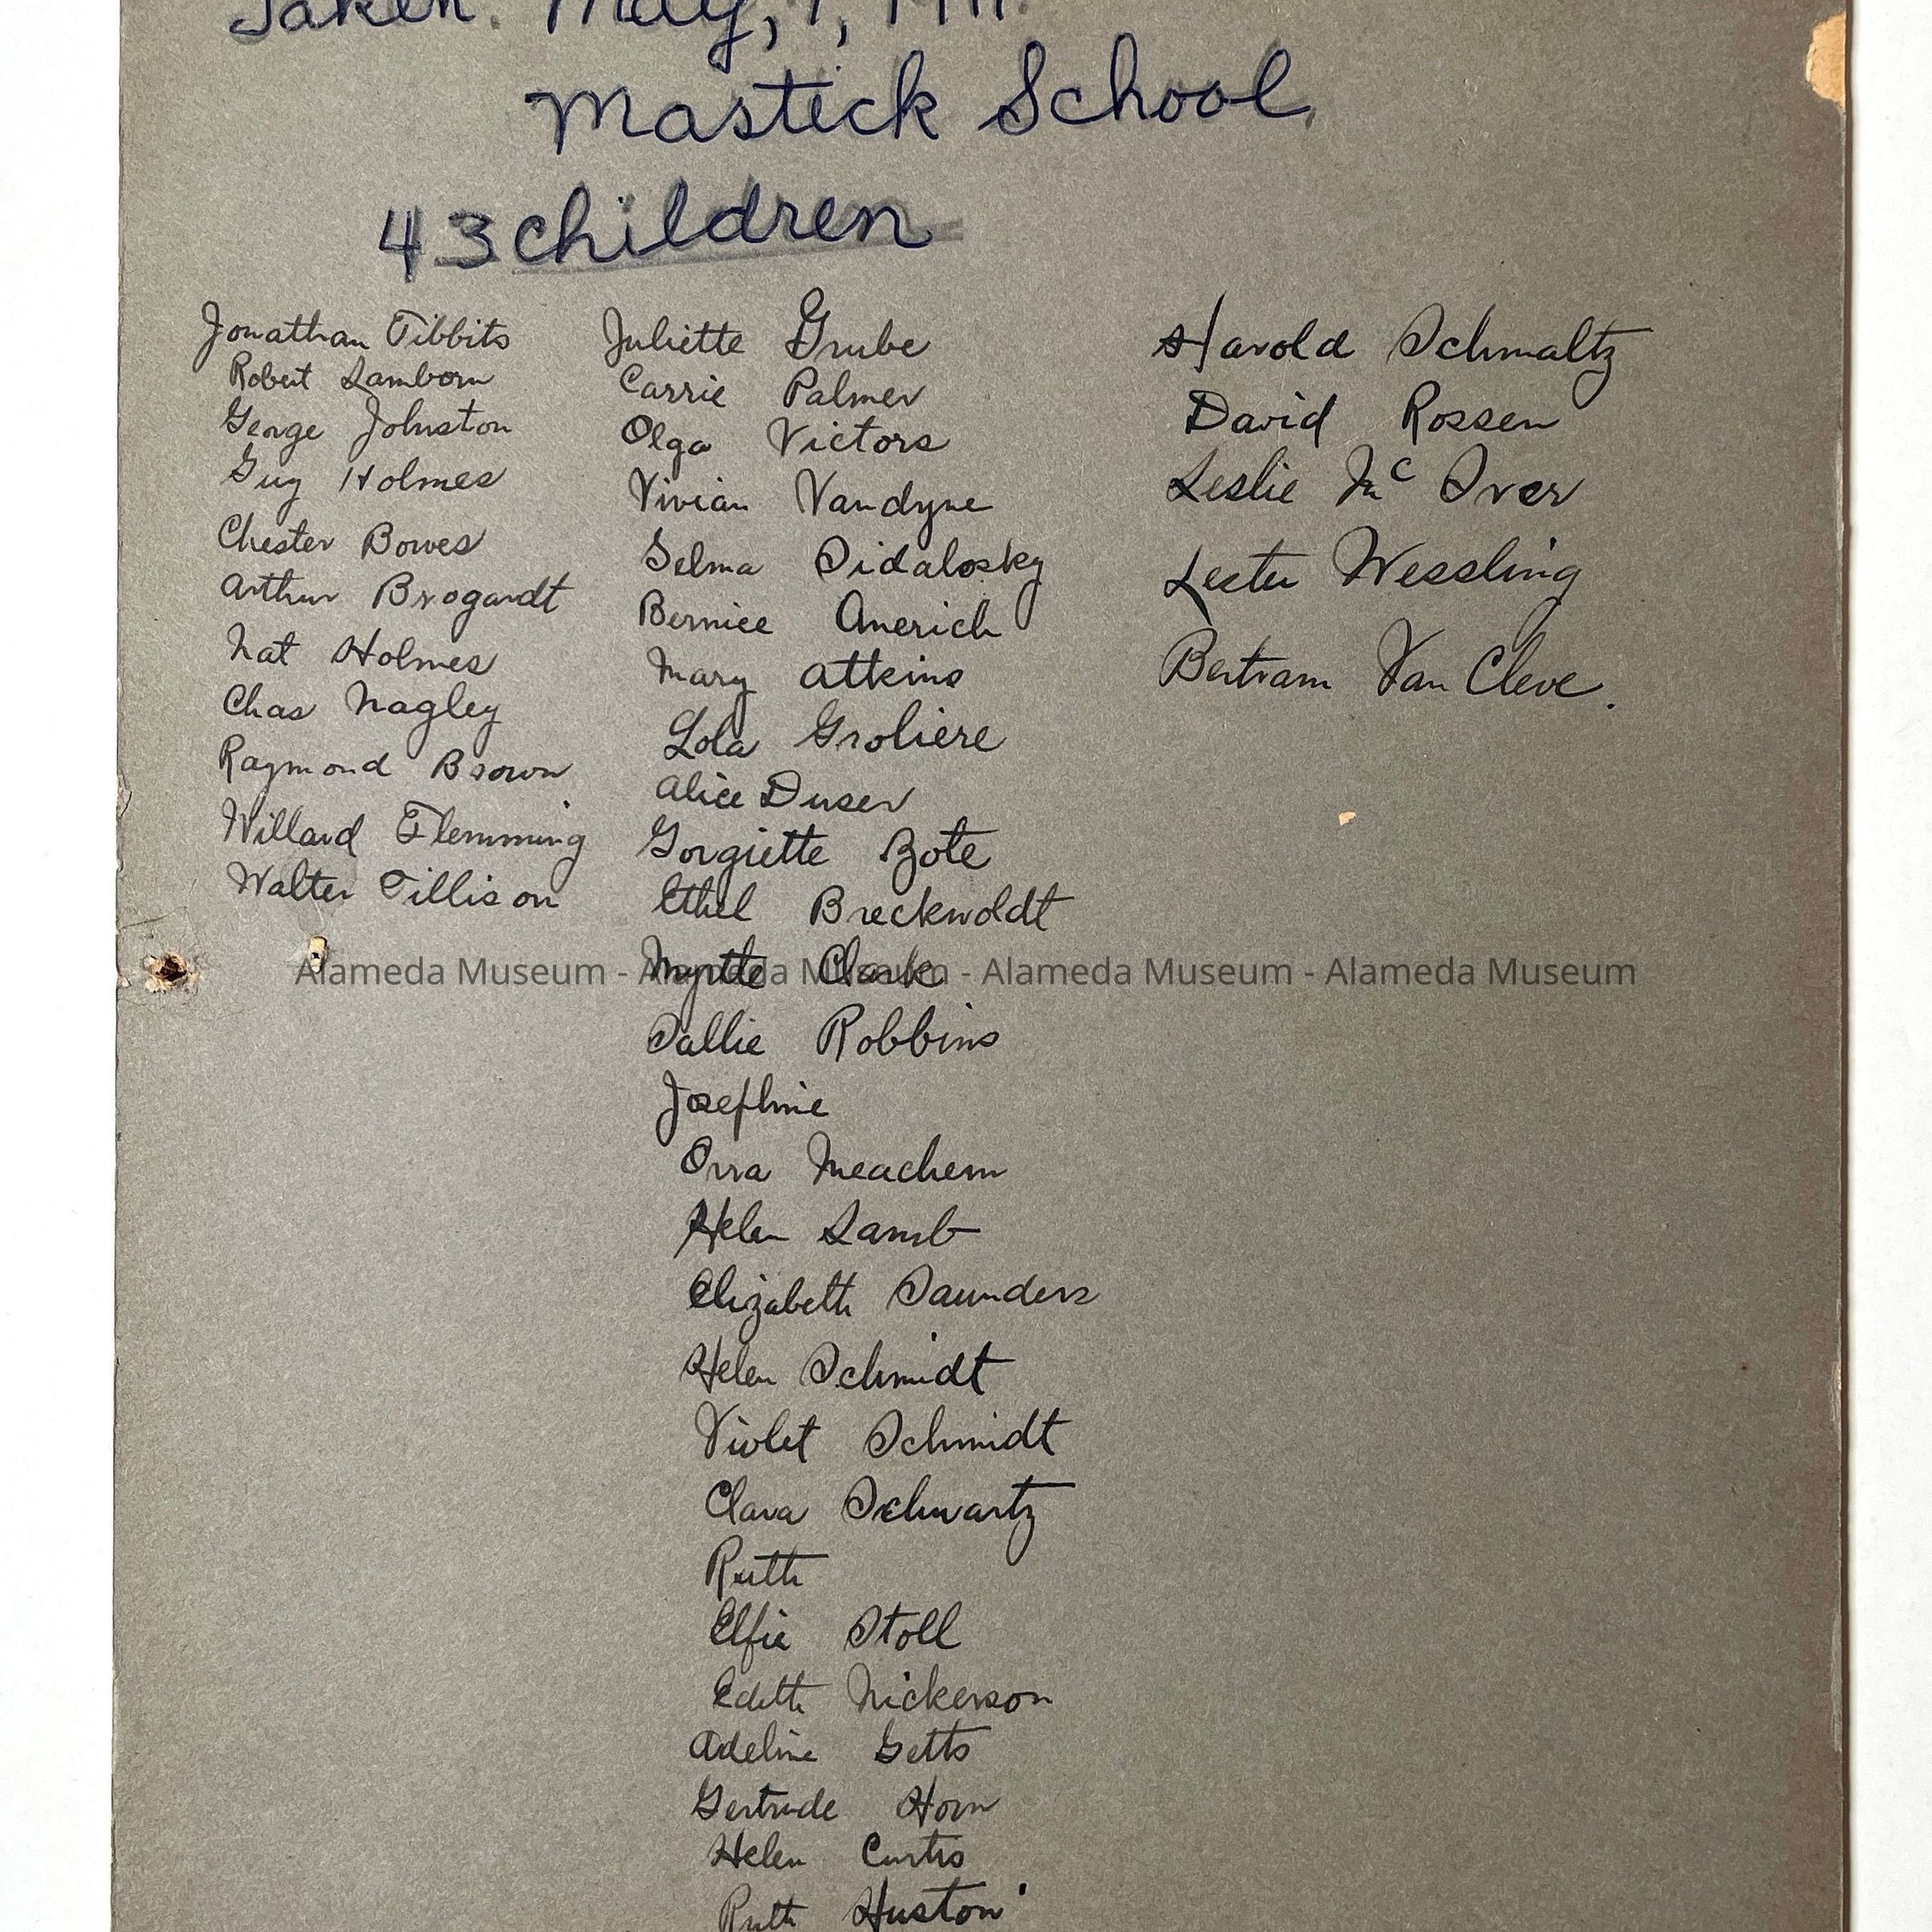 Taken. May, 9, 1911.
Mastick School.
43 children
Jonathan Tibbits
Robert Lamborn
George Johnston
Guy Holmes
Chester Bowes
Arthur Brogardt
Nat Holmes
Chas Nagley
Raymond Brown
Willard Flemming
Walter Tillison
Juliette Grube
Carrie Palmer
Olga Victors
Vivian Vandyne
Selma Sidalosky
Bernice Americh
Mary Atkins
Lola Groliere
Alice Duser
Gorgiette Bote
Ethel Breckwoldt
Myrtle Clark
Sallie Robbins
Josephine
Orra Meachem
Helen Lamb
Elizabeth Saunders
Helen Schmidt
Violet Schmidt
Clara Schwartz
Ruth
Elfie Stoll
Edith Nickerson
Adeline Getts
Gertrude Horn
Helen Curtis
Ruth Huston
Harold Schmaltz
David Rossen
Leslie Mc Iver
Lester Wessling
Bertram Van Cleve.
Alameda Museum - Alameda Museum - Alameda Museum - Alameda Museum